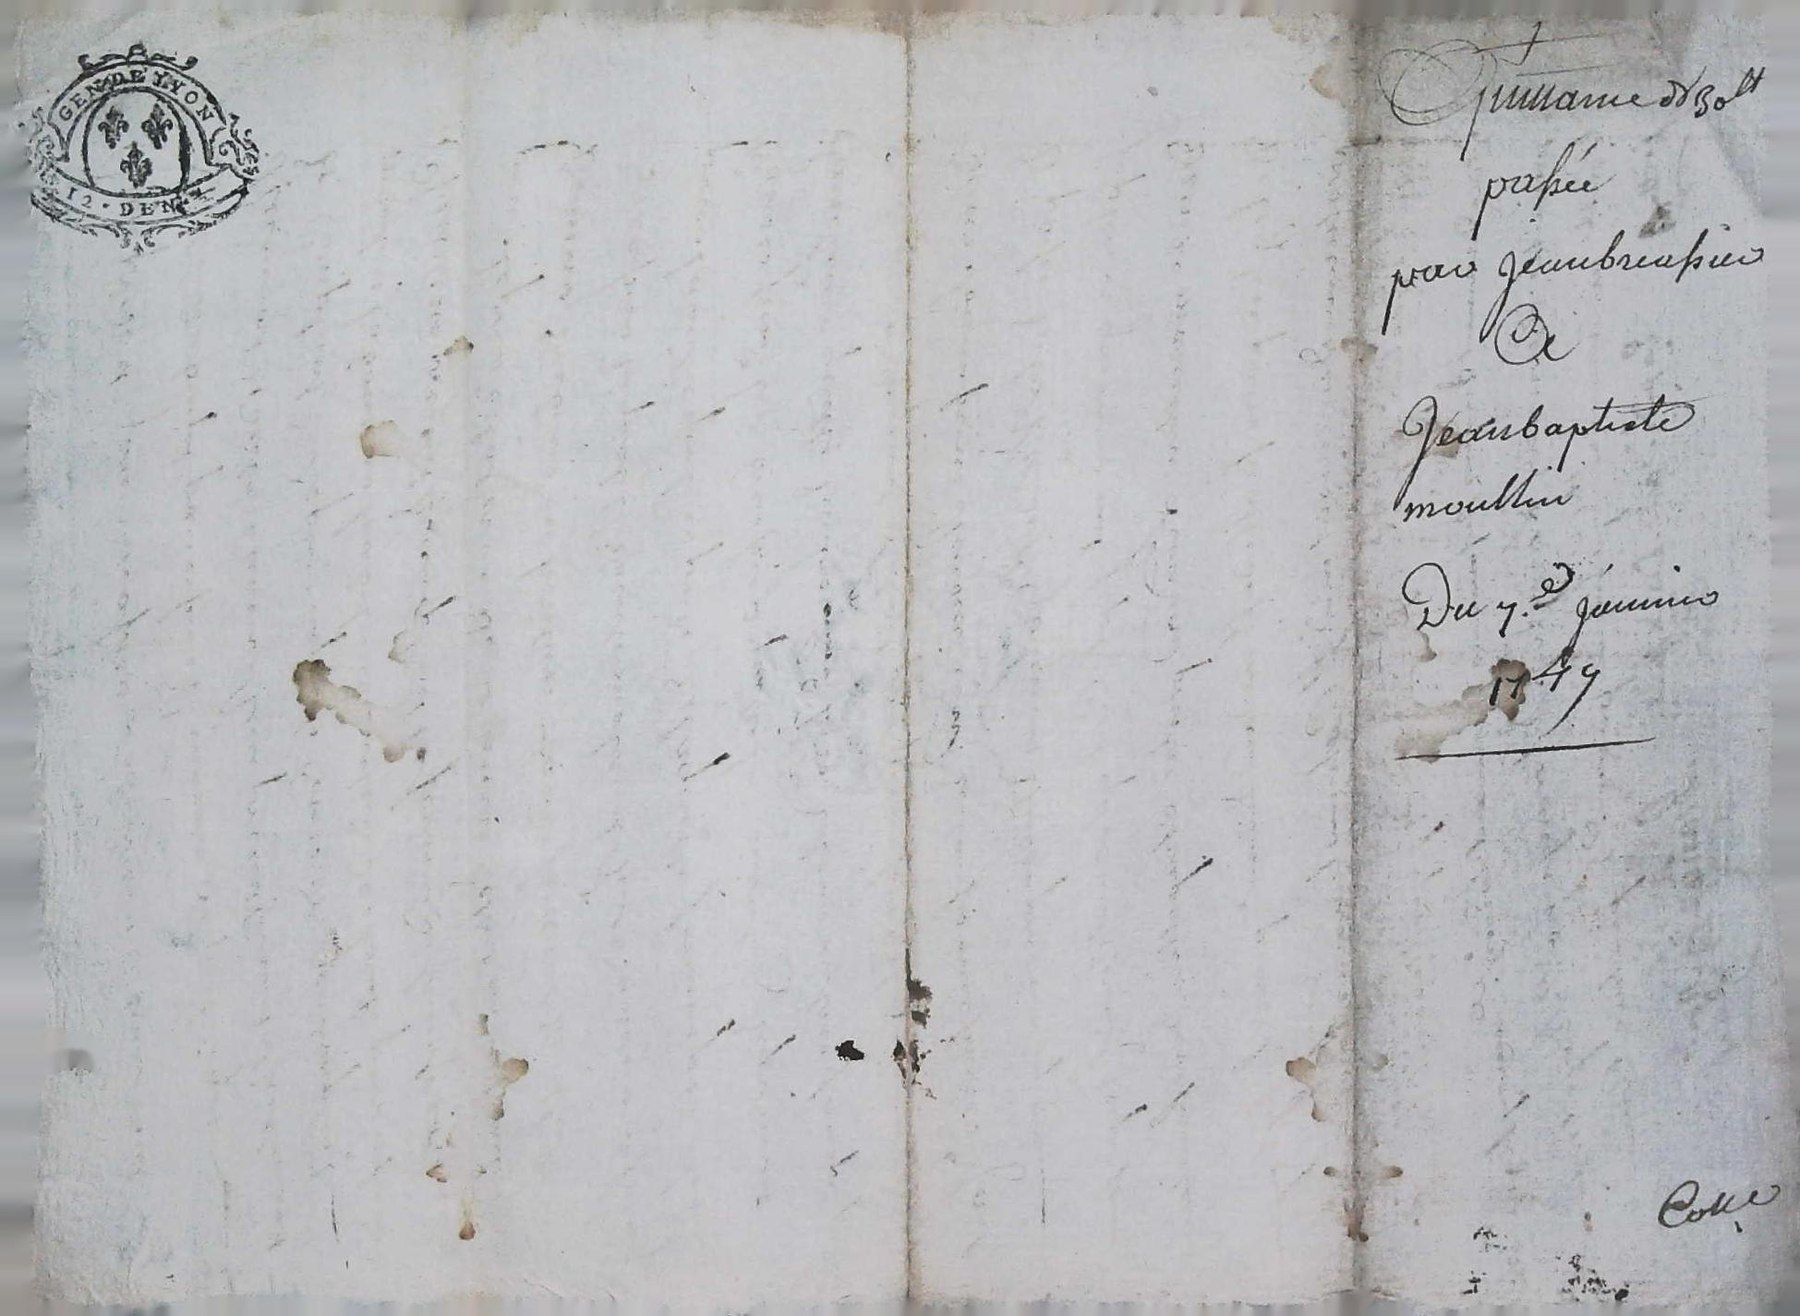 GEN DE LYON
12 · DEN
Quittance de 30lt
passée
par Jean bressieu
A
Jean baptiste
moullin
Du 7.e janvier
1747